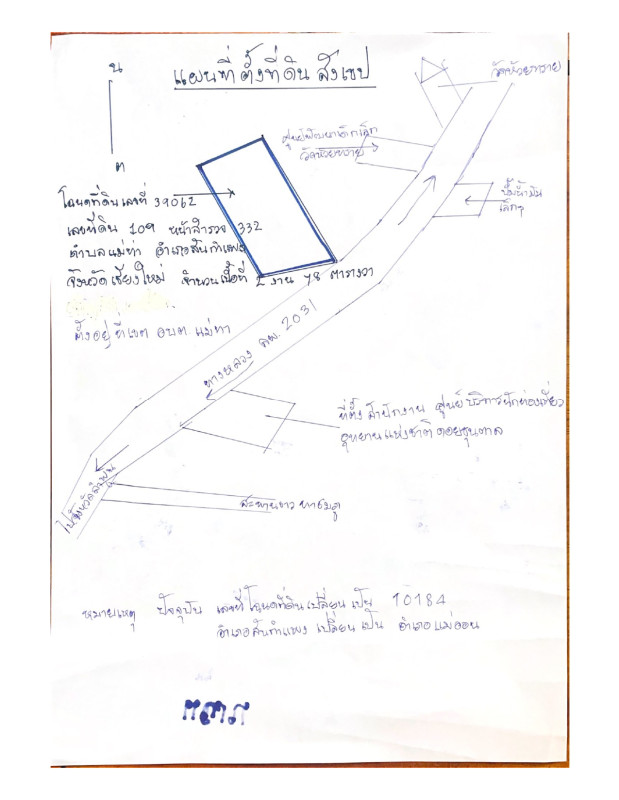 แผนที่ ตั้งที่ดิน สังเขป
น
ต
วัดห้วยทราย
ศูนย์พัฒนาเด็กเล็ก
วัดห้วยทราย
ปั๊มน้ำมัน
เล็กๆ
โฉนดที่ดินเลขที่ 39062
เลขที่ดิน 109 หน้าสำรวจ 332
ตำบลแม่ทา อำเภอสันกำแพง
จังหวัดเชียงใหม่ จำนวนเนื้อที่ 2 งาน 78 ตารางวา
ตั้งอยู่ที่เขต อบต แม่ทา
ทางหลวง 2031
ที่ตั้ง สำนักงาน ศูนย์บริการนักท่องเที่ยว
อุทยานแห่งชาติ ดอยขุนตาล
ไปจังหวัดลำพูน
สะพานขาว ทาชมภู
หมายเหตุ ปัจจุบัน เลขที่โฉนดที่ดินเปลี่ยนเป็น 10184
อำเภอสันกำแพง เปลี่ยนเป็น อำเภอแม่ออน